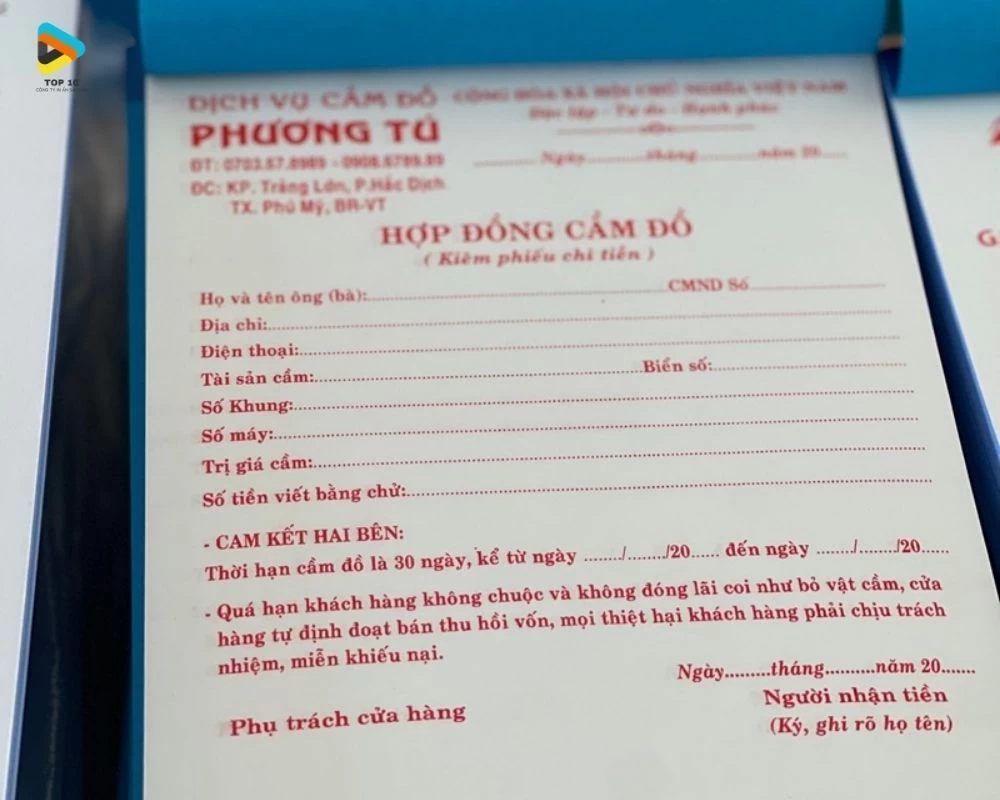 TOP 10
CÔNG TY IN ẤN
DỊCH VỤ CẦM ĐỒ
PHƯƠNG TÚ
CỘNG HÒA XÃ HỘI CHỦ NGHĨA VIỆT NAM
Độc lập - Tự do - Hạnh phúc
ĐT: 0703.57.8989 - 0908.6789.89
............ Ngày............tháng............năm 20......
ĐC: KP. Trảng Lớn, P.Hắc Dịch
TX. Phú Mỹ, BR-VT
HỢP ĐỒNG CẦM ĐỒ
( Kiêm phiếu chi tiền )
Họ và tên ông (bà):............CMND Số............
Địa chỉ:............
Điện thoại:............
Tài sản cầm:............Biển số:............
Số Khung:............
Số máy:............
Trị giá cầm:............
Số tiền viết bằng chữ:............
- CAM KẾT HAI BÊN:
Thời hạn cầm đồ là 30 ngày, kể từ ngày ......../......../20...... đến ngày ......../......../20......
- Quá hạn khách hàng không chuộc và không đóng lãi coi như bỏ vật cầm, cửa
hàng tự định đoạt bán thu hồi vốn, mọi thiệt hại khách hàng phải chịu trách
nhiệm, miễn khiếu nại.
Ngày.........tháng..........năm 20.......
Phụ trách cửa hàng
Người nhận tiền
(Ký, ghi rõ họ tên)